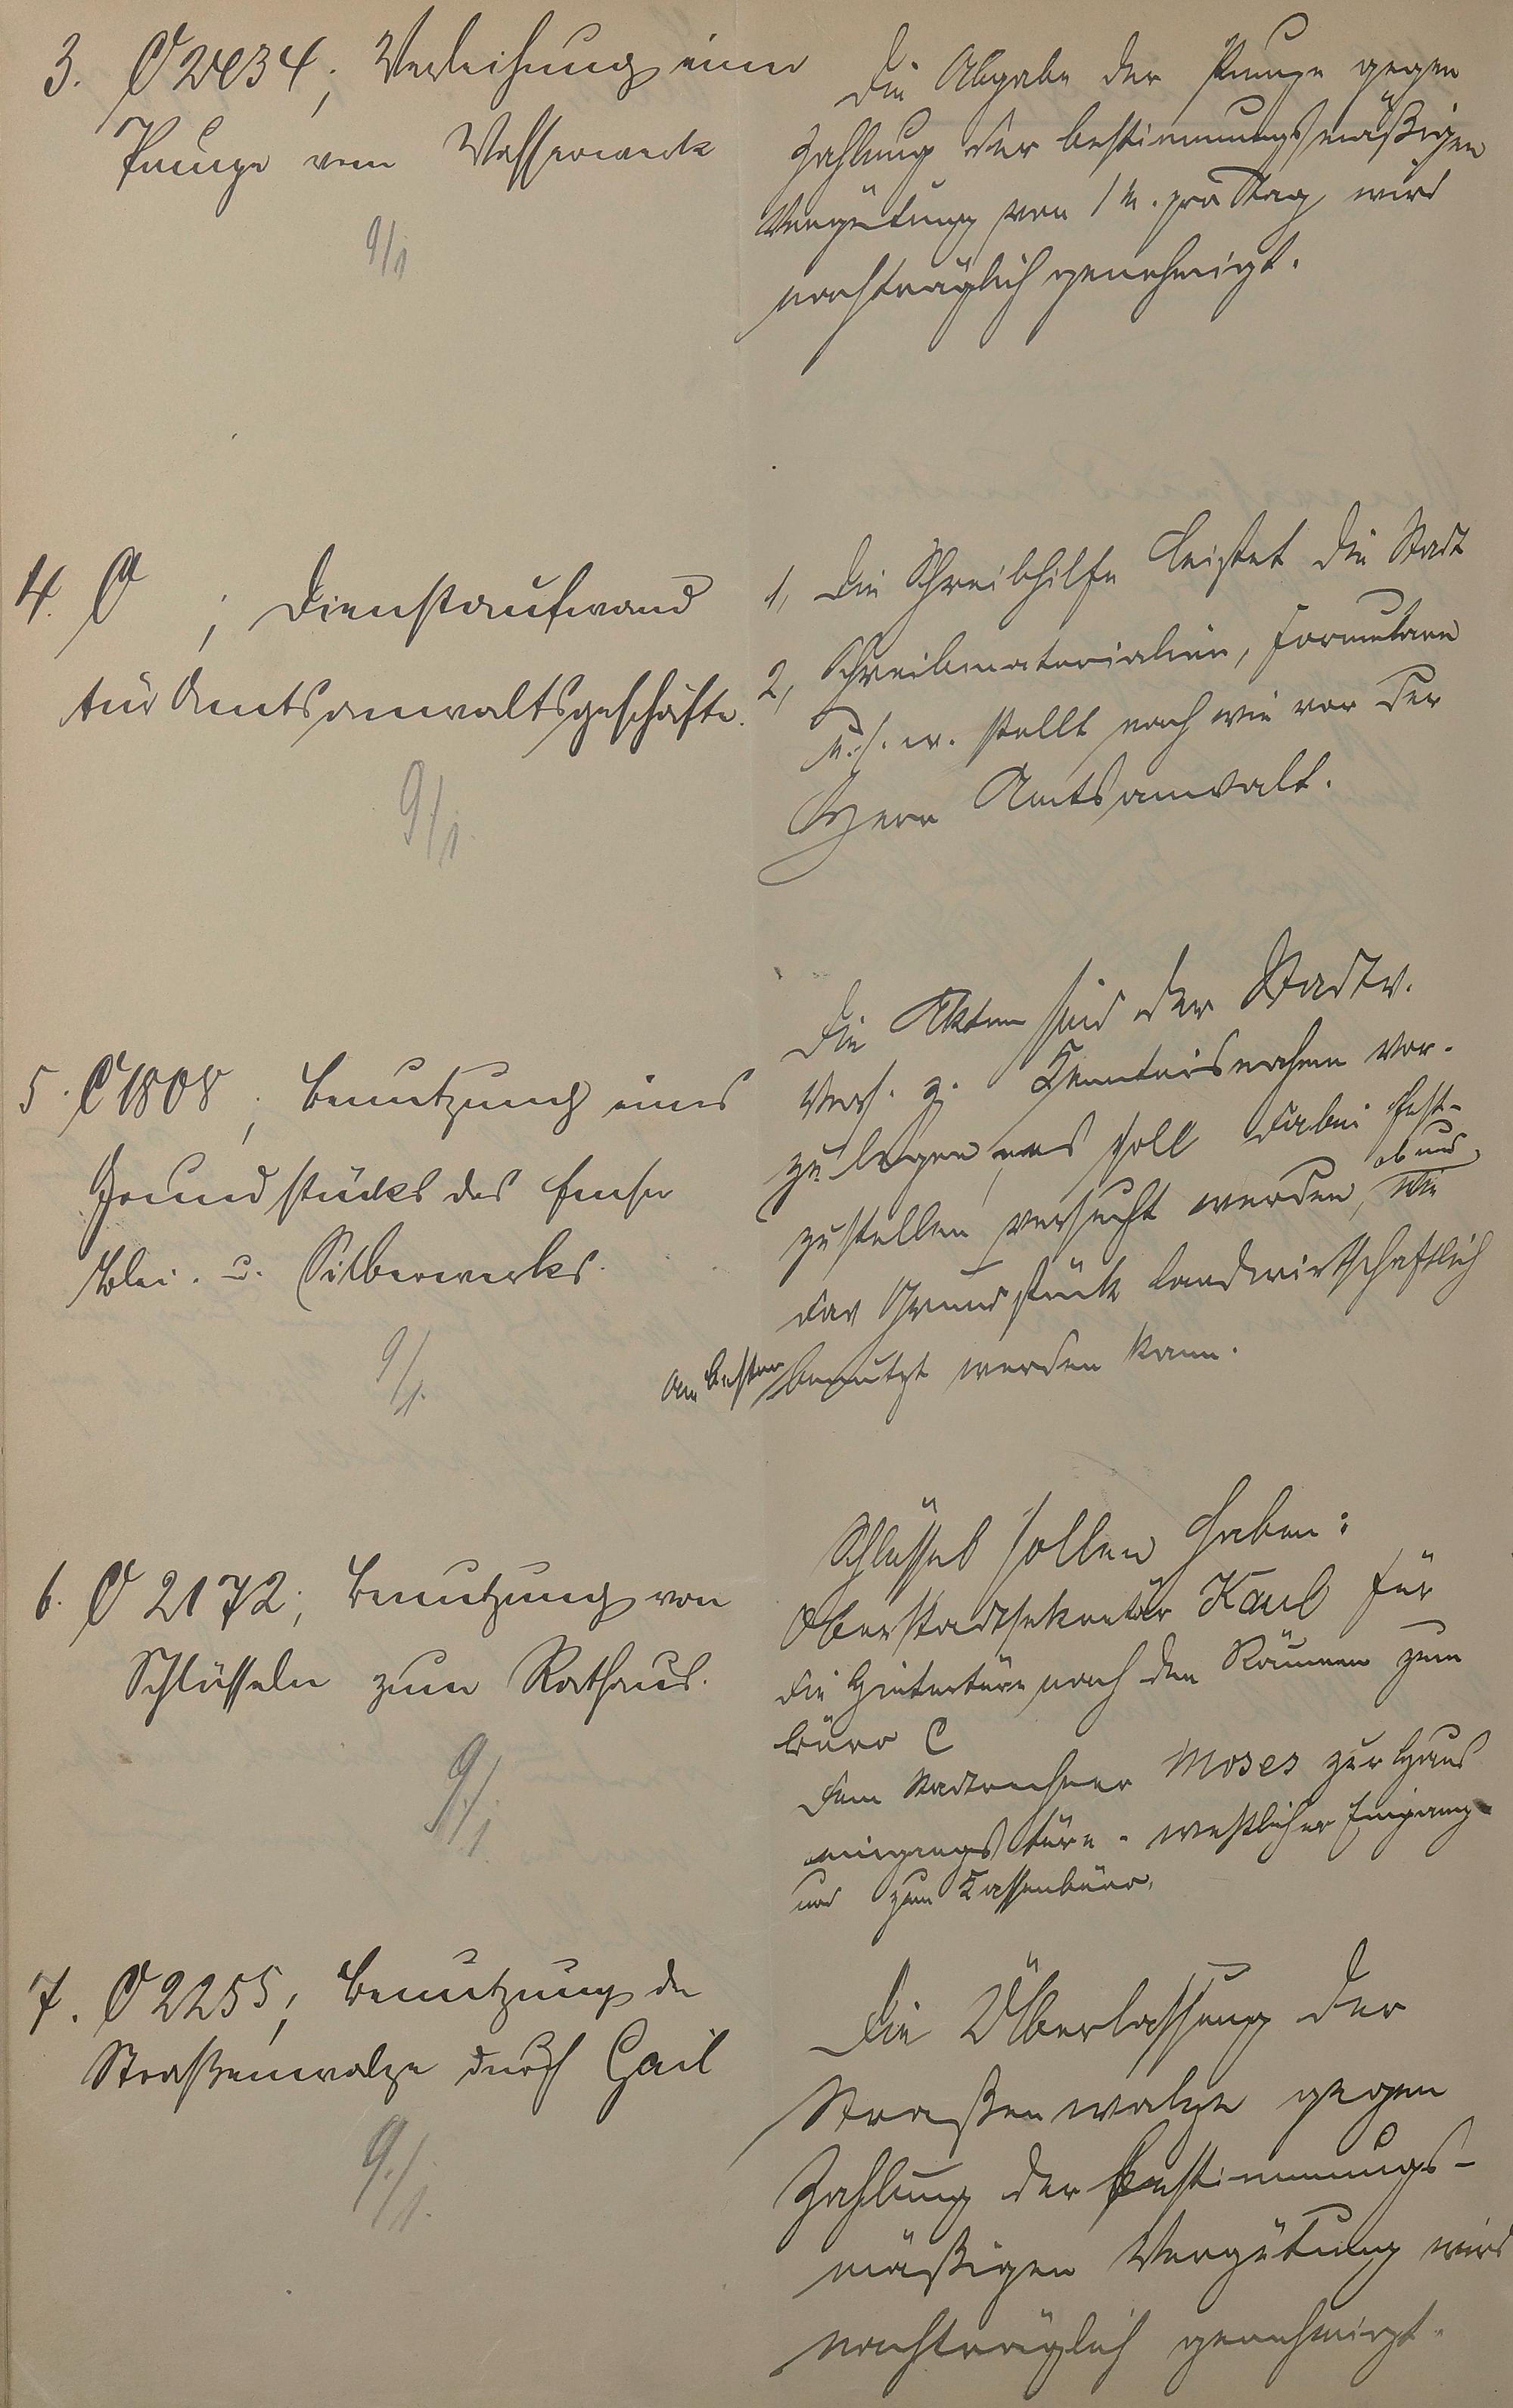 3. C 2434; Verleihung einer
Pumpe vom Wasserwerk
9/1
Die Abgabe der Pumpe gegen
Zahlung der bestimmungsmäßigen
Vergütung von 1 M. pro Tag wird
nachträglich genehmigt.
4. C ; Dienstaufwand
für Amtsanwaltsgeschäfte.
9/1.
1, Die Schreibhilfe leistet die Stadt
2, Schreibmaterialien, Formulare
u.s.w. stellt nach wie vor der
Herr Amtsanwalt.
5. C 1808; Benutzung eines
Grundstücks des Emser
Blei- u. Silberwerks.
9/1.
Die Akten sind der Stadtv.
Vers. z. Kenntnisnahme vor-
zulegen, es soll dabei fest-
zustellen versucht werden, ob und wie
das Grundstück landwirtschaftlich
am besten benutzt werden kann.
6. C 2172; Benutzung von
Schlüsseln zum Rathaus.
9./1.
Schlüssel sollen haben:
Oberstadtsekretär Kaul für
die Hintertüre nach den Räumen zum
Büro C
dem Stadtrechner Moses zur Haus
eingangstüre - westlicher Eingang -
und zum Kassenbüro.
7. C 2255; Benutzung der
Straßenwalze durch Gail
9./1.
Die Überlassung der
Straßenwalze gegen
Zahlung der bestimmungs-
mäßigen Vergütung wird
nachträglich genehmigt.